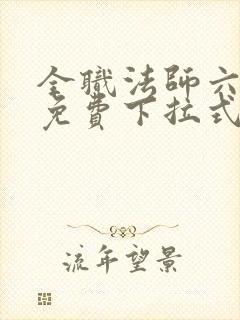 全職法師六
免費下拉式
流年望景